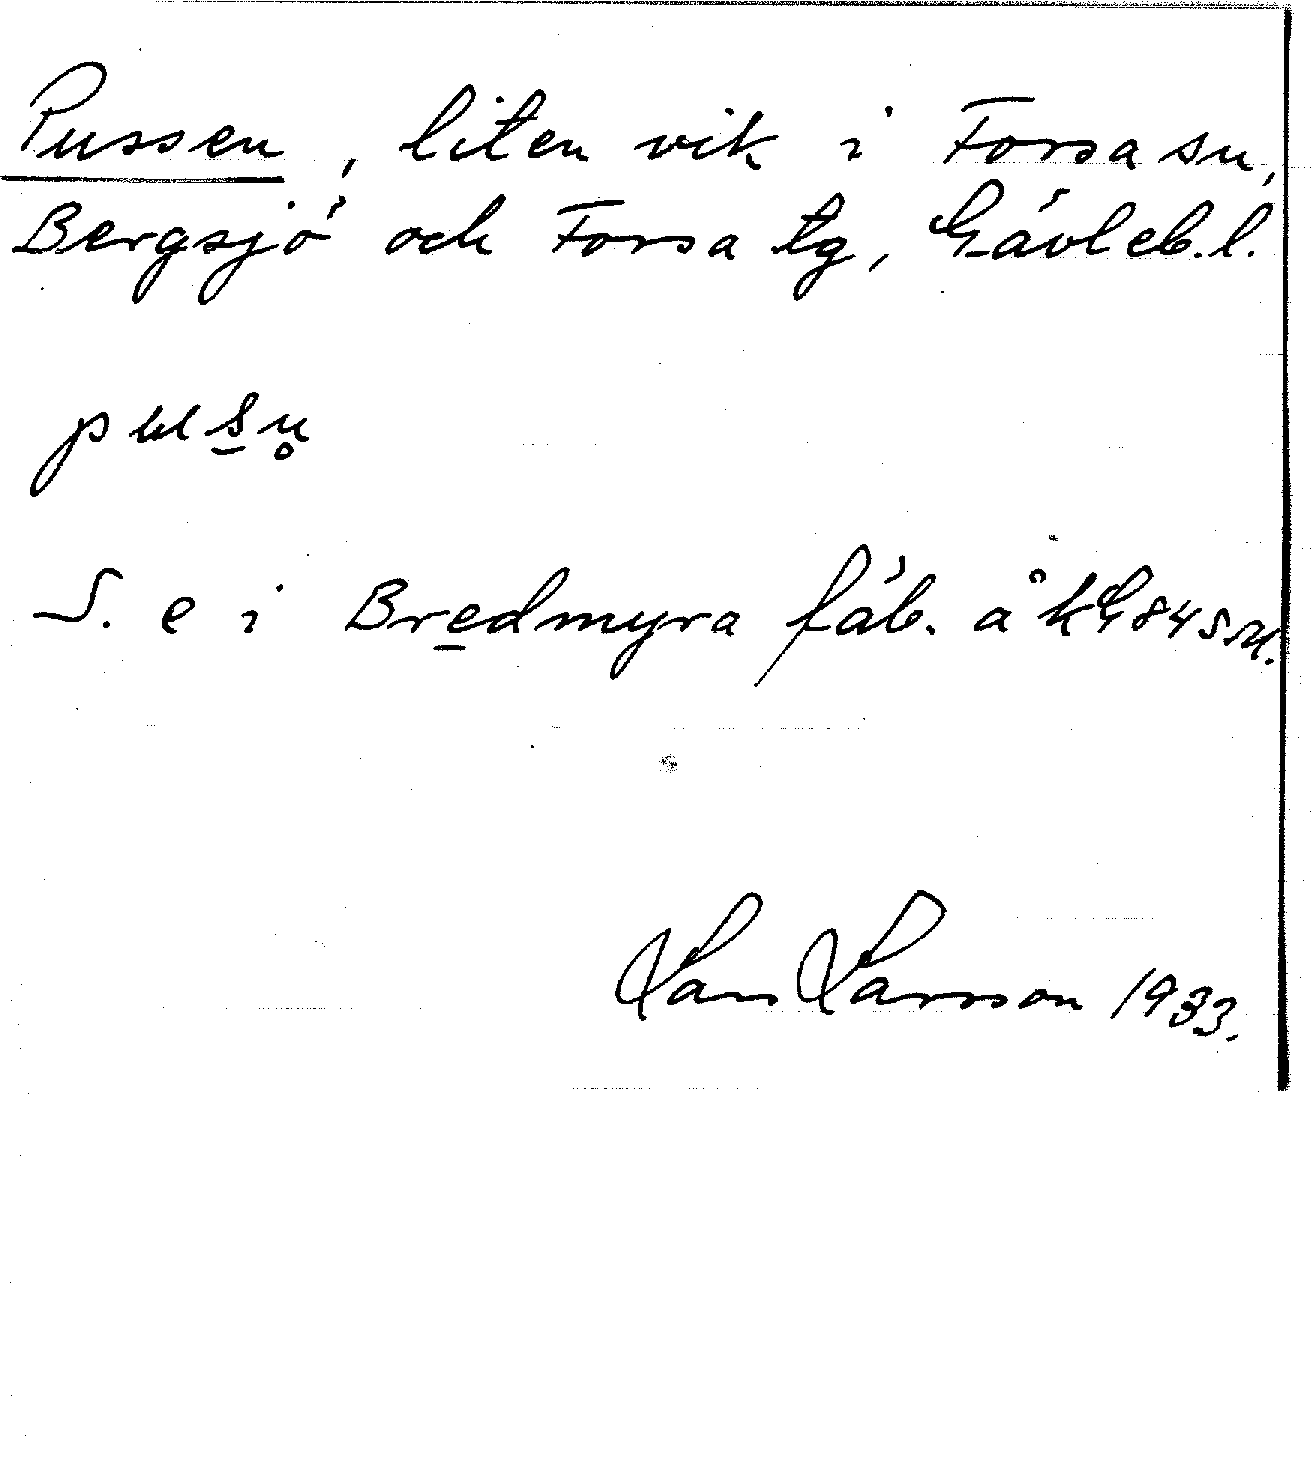 Pussen, liten vik i Forsa sn,
Bergsjö och Forsa tg, Gävleb.l.
S. e i Bredmyra fäb. å kG 84 SM.
Lars Larsson 1933.